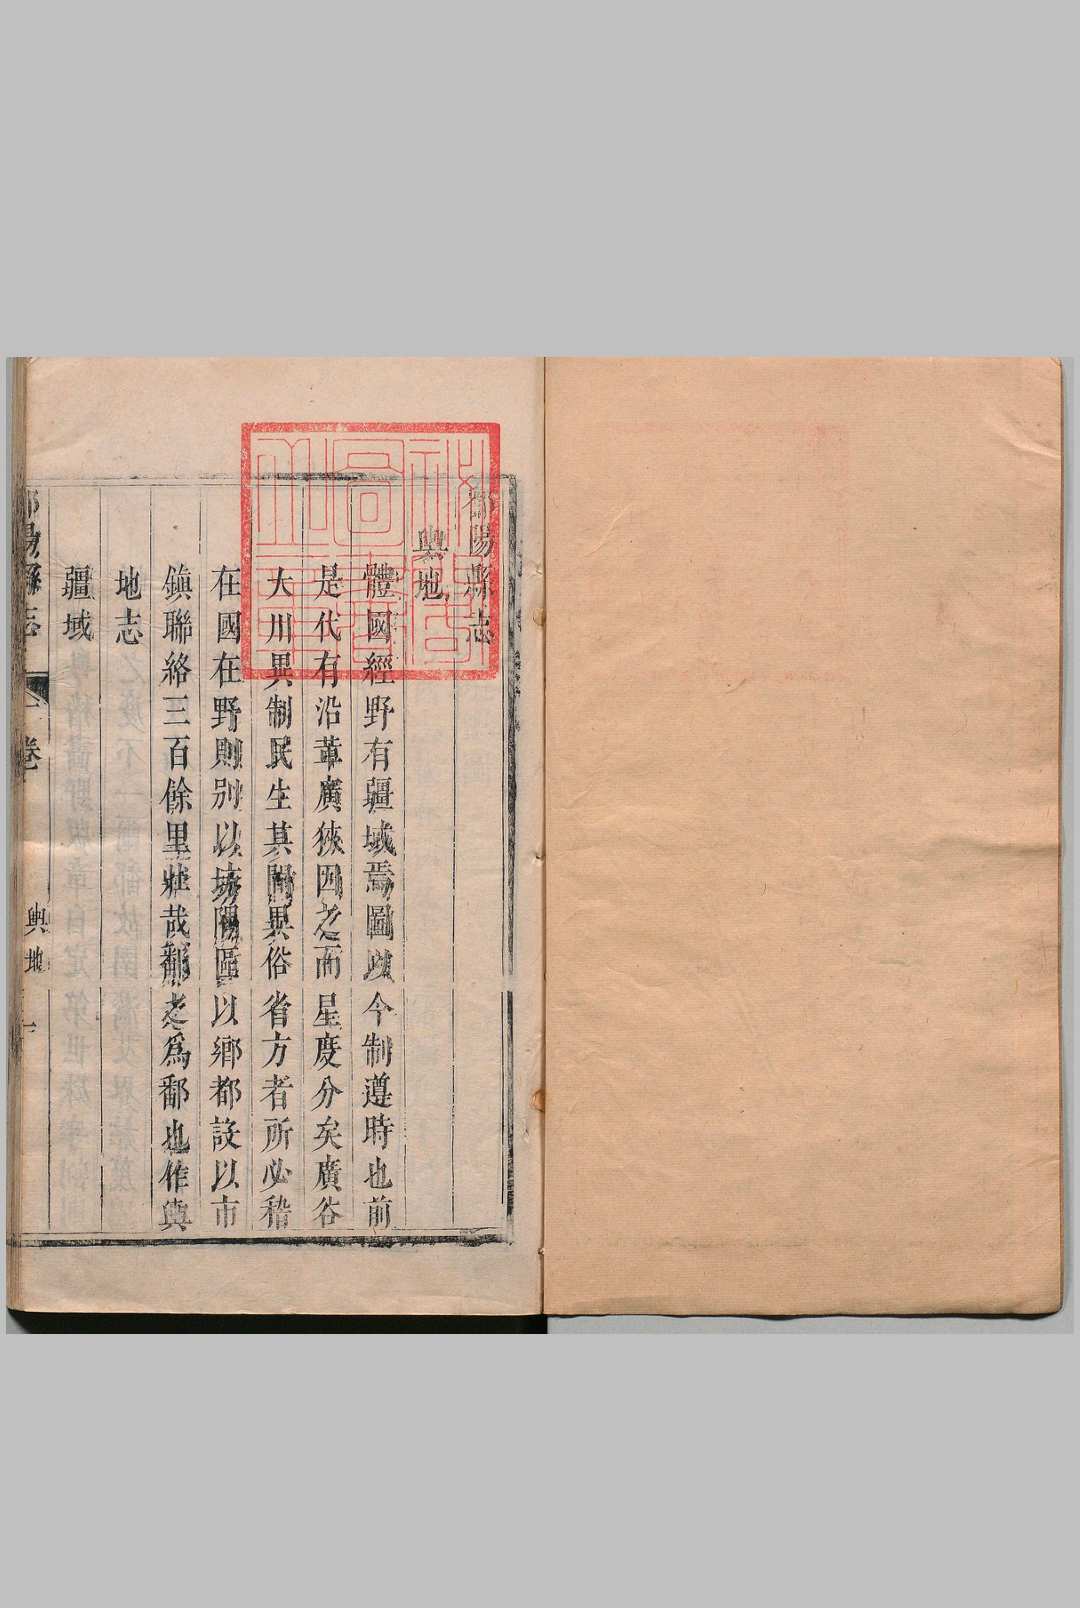 鄱陽縣志
輿地
體國經野有疆域焉圖以今制遵時也前
是代有沿革廣狹因之而星度分矣廣谷
大川異制民生其間異俗省方者所必稽
在國在野則別以坊隅區以鄉都設以市
鎮聯絡三百餘里壯哉鄱之為鄱也作輿
地志
疆域
鄱陽縣志
卷
輿地
一